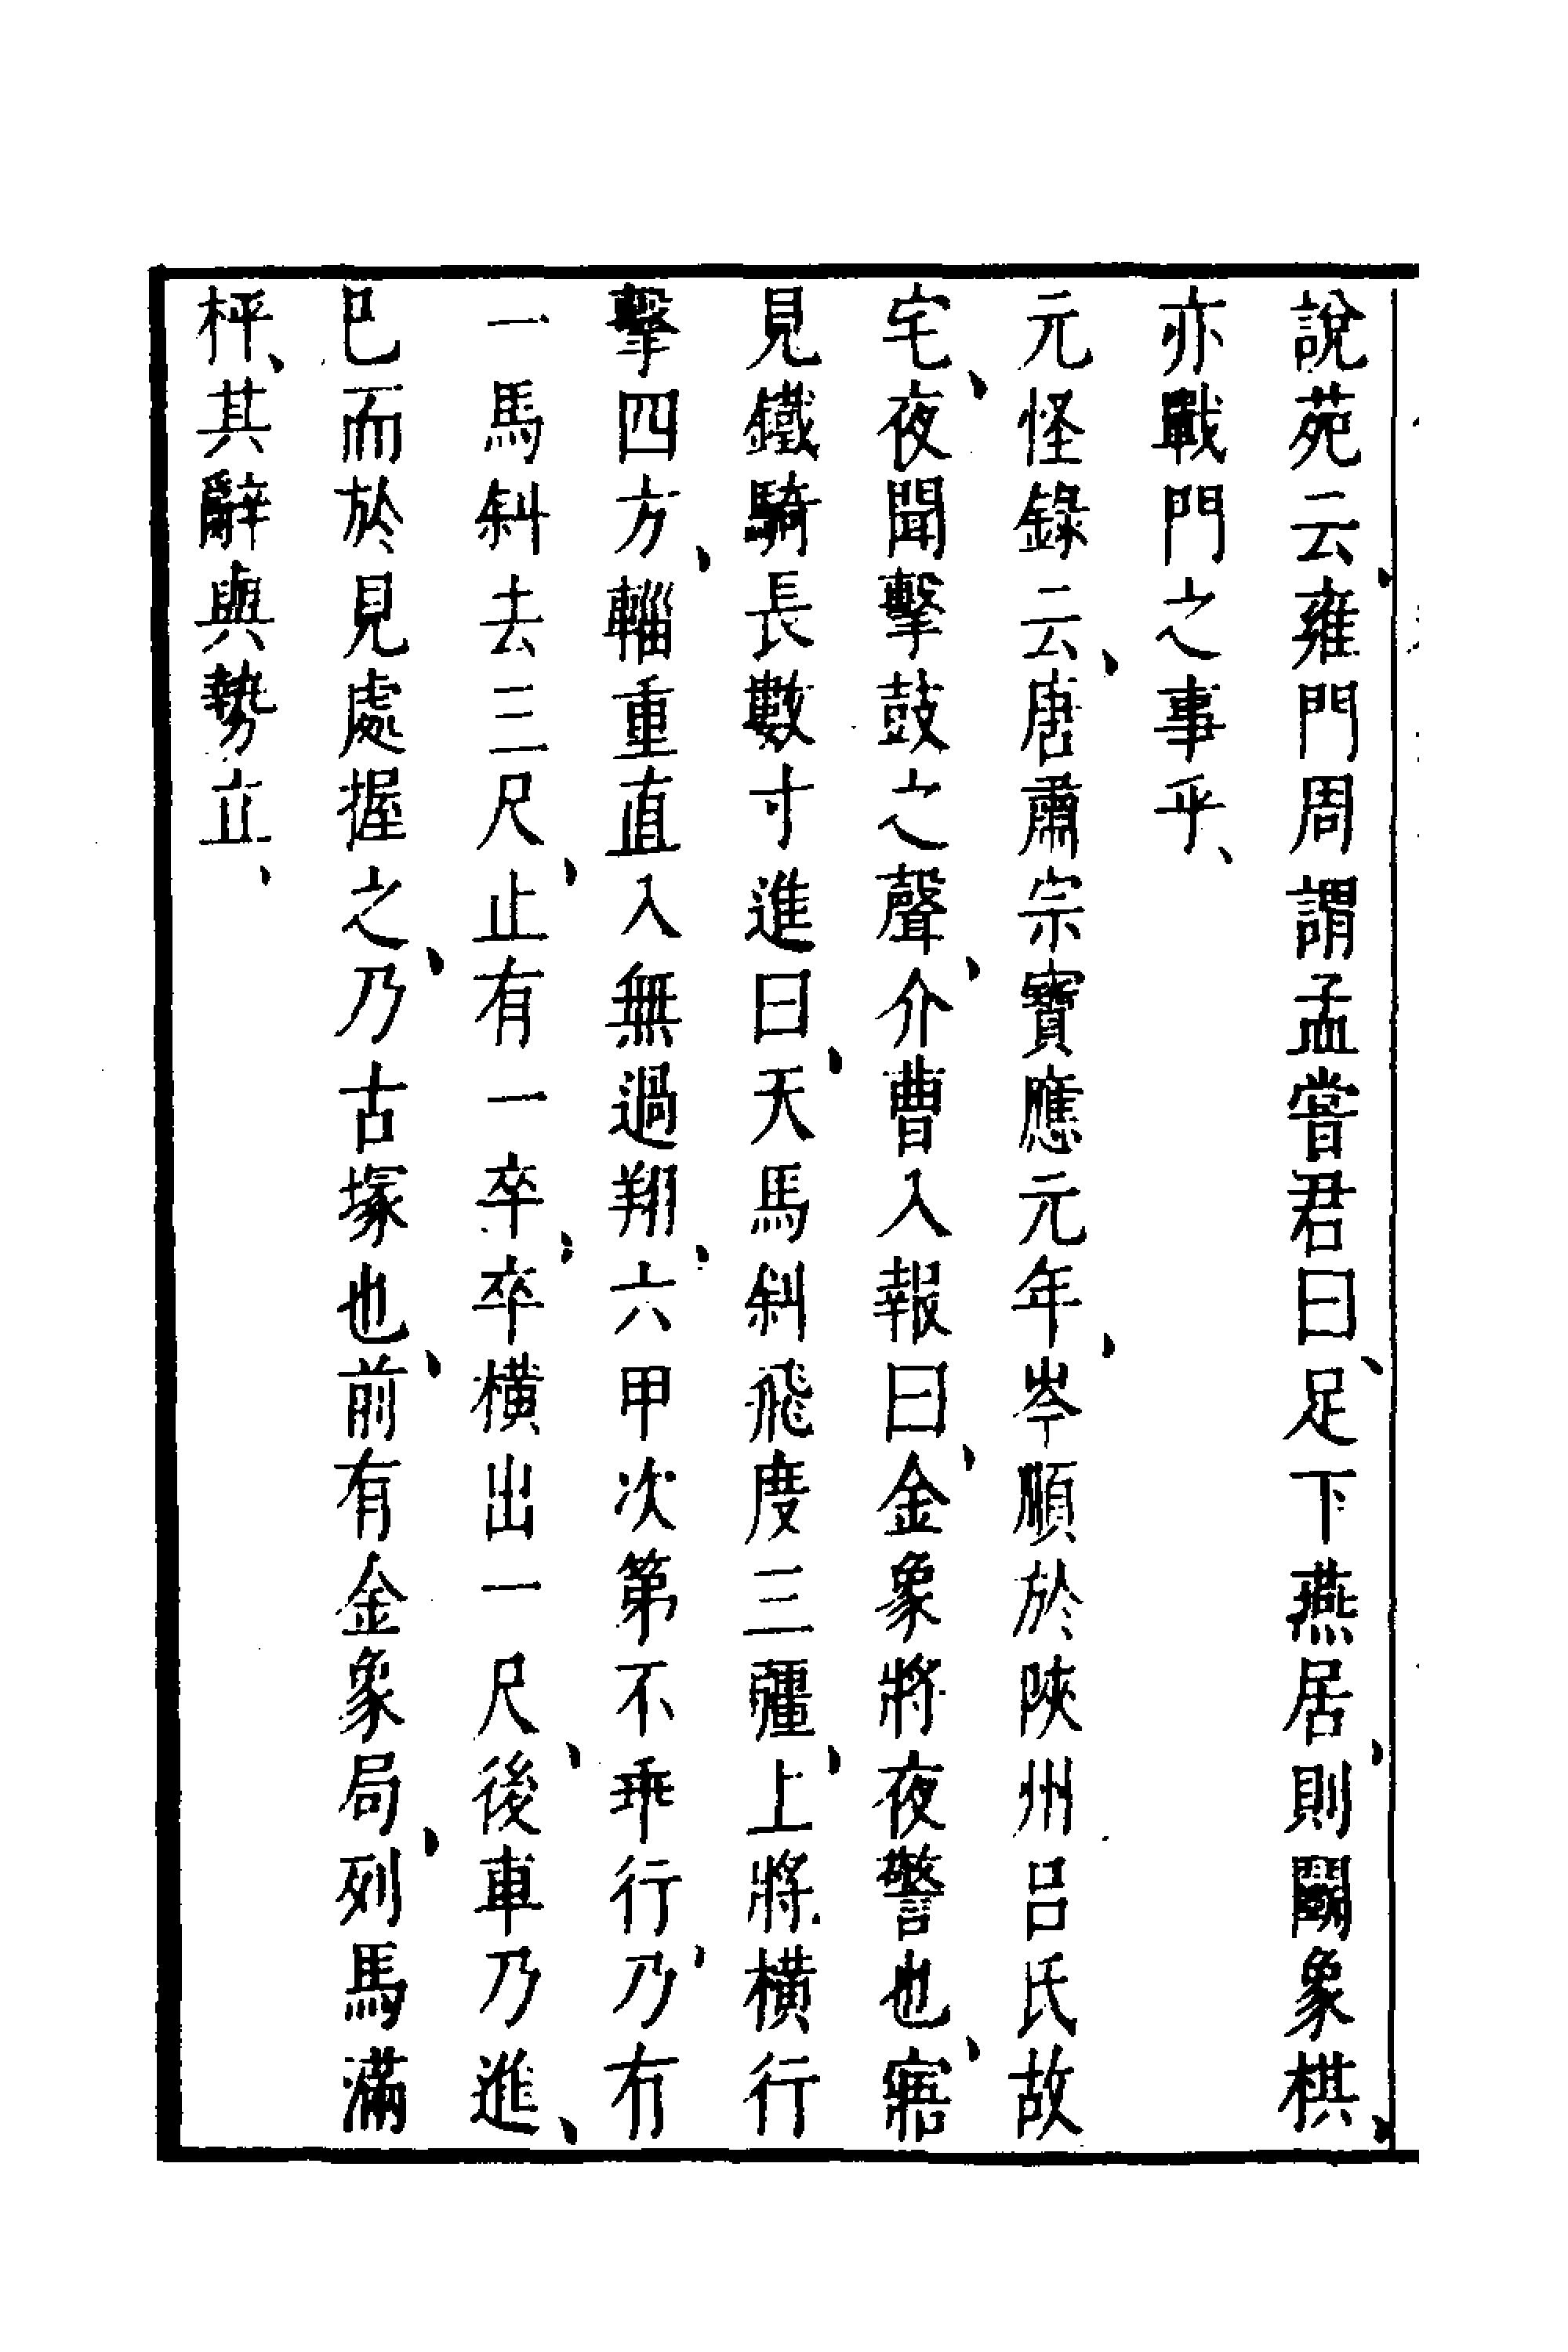 說苑云、雍門周謂孟嘗君曰、足下燕居、則鬭象棋、
亦戰鬥之事乎、
元怪錄云、唐肅宗寶應元年、岑順於陝州呂氏故
宅、夜聞擊鼓之聲、介曹入報曰、金象將夜警也、寤
見鐵騎長數寸進曰、天馬斜飛度三疆、上將橫行
擊四方、輜重直入無過翔、六甲次第不乖行、乃有
一馬斜去三尺、止有一卒、卒橫出一尺、後車乃進、
已而於見處握之、乃古塚也、前有金象局、列馬滿
枰、其辭與勢立、